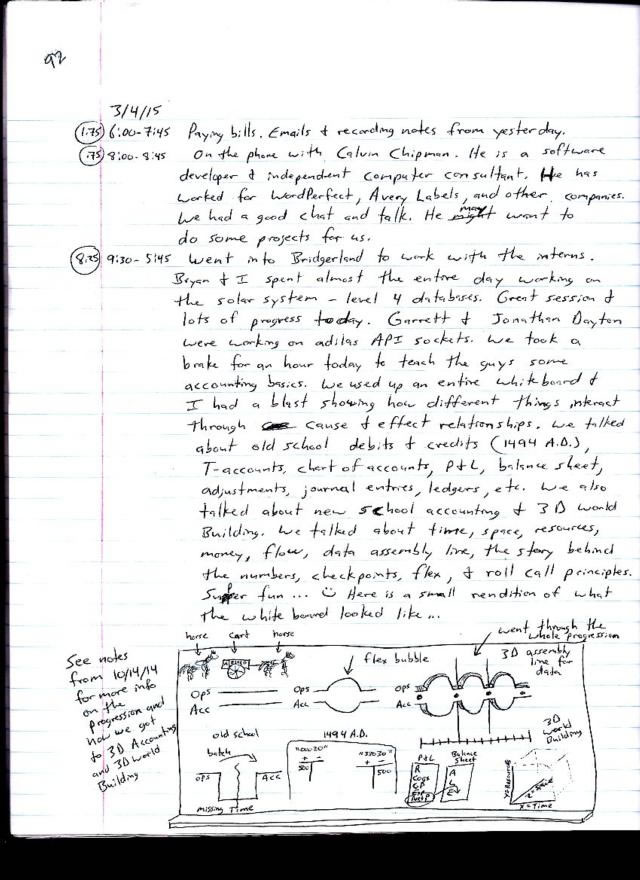 92
3/4/15
1.75 6:00-7:45 Paying bills. Emails & recording notes from yesterday.
.75 8:00-8:45 On the phone with Calvin Chipman. He is a software
developer & independent computer consultant. He has
worked for WordPerfect, Avery Labels, and other companies.
We had a good chat and talk. He may want to
do some projects for us.
8.25 9:30-5:45 Went into Bridgerland to work with the interns.
Bryan & I spent almost the entire day working on
the solar system - level 4 databases. Great session &
lots of progress today. Garrett & Jonathan Dayton
were working on adilas API sockets. We took a
brake for an hour today to teach the guys some
accounting basics. We used up an entire whiteboard &
I had a blast showing how different things interact
through cause & effect relationships. We talked
about old school debits & credits (1494 A.D.),
T-accounts, chart of accounts, P&L, balance sheet,
adjustments, journal entries, ledgers, etc. We also
talked about new school accounting & 3D World
Building. We talked about time, space, resources,
money, flow, data assembly line, the story behind
the numbers, checkpoints, flex, & roll call principles.
Super fun... Here is a small rendition of what
the white board looked like...
See notes
from 10/14/14
for more info
on the
progression and
how we got
to 3D Accounting
and 3D World
Building
horse cart horse
went through the
whole progression
flex bubble
3D assembly
line for
data
Ops
Acc
Ops
Acc
Ops
Acc
3D
World
Building
old school
batch
OPS ACC
missing Time
1494 A.D.
+ -
500
+ -
500
P&L
R
COGS
GP
EXP
Net P
Balance
Sheet
A
L
E
Y=Resources
Z=Space
X=Time